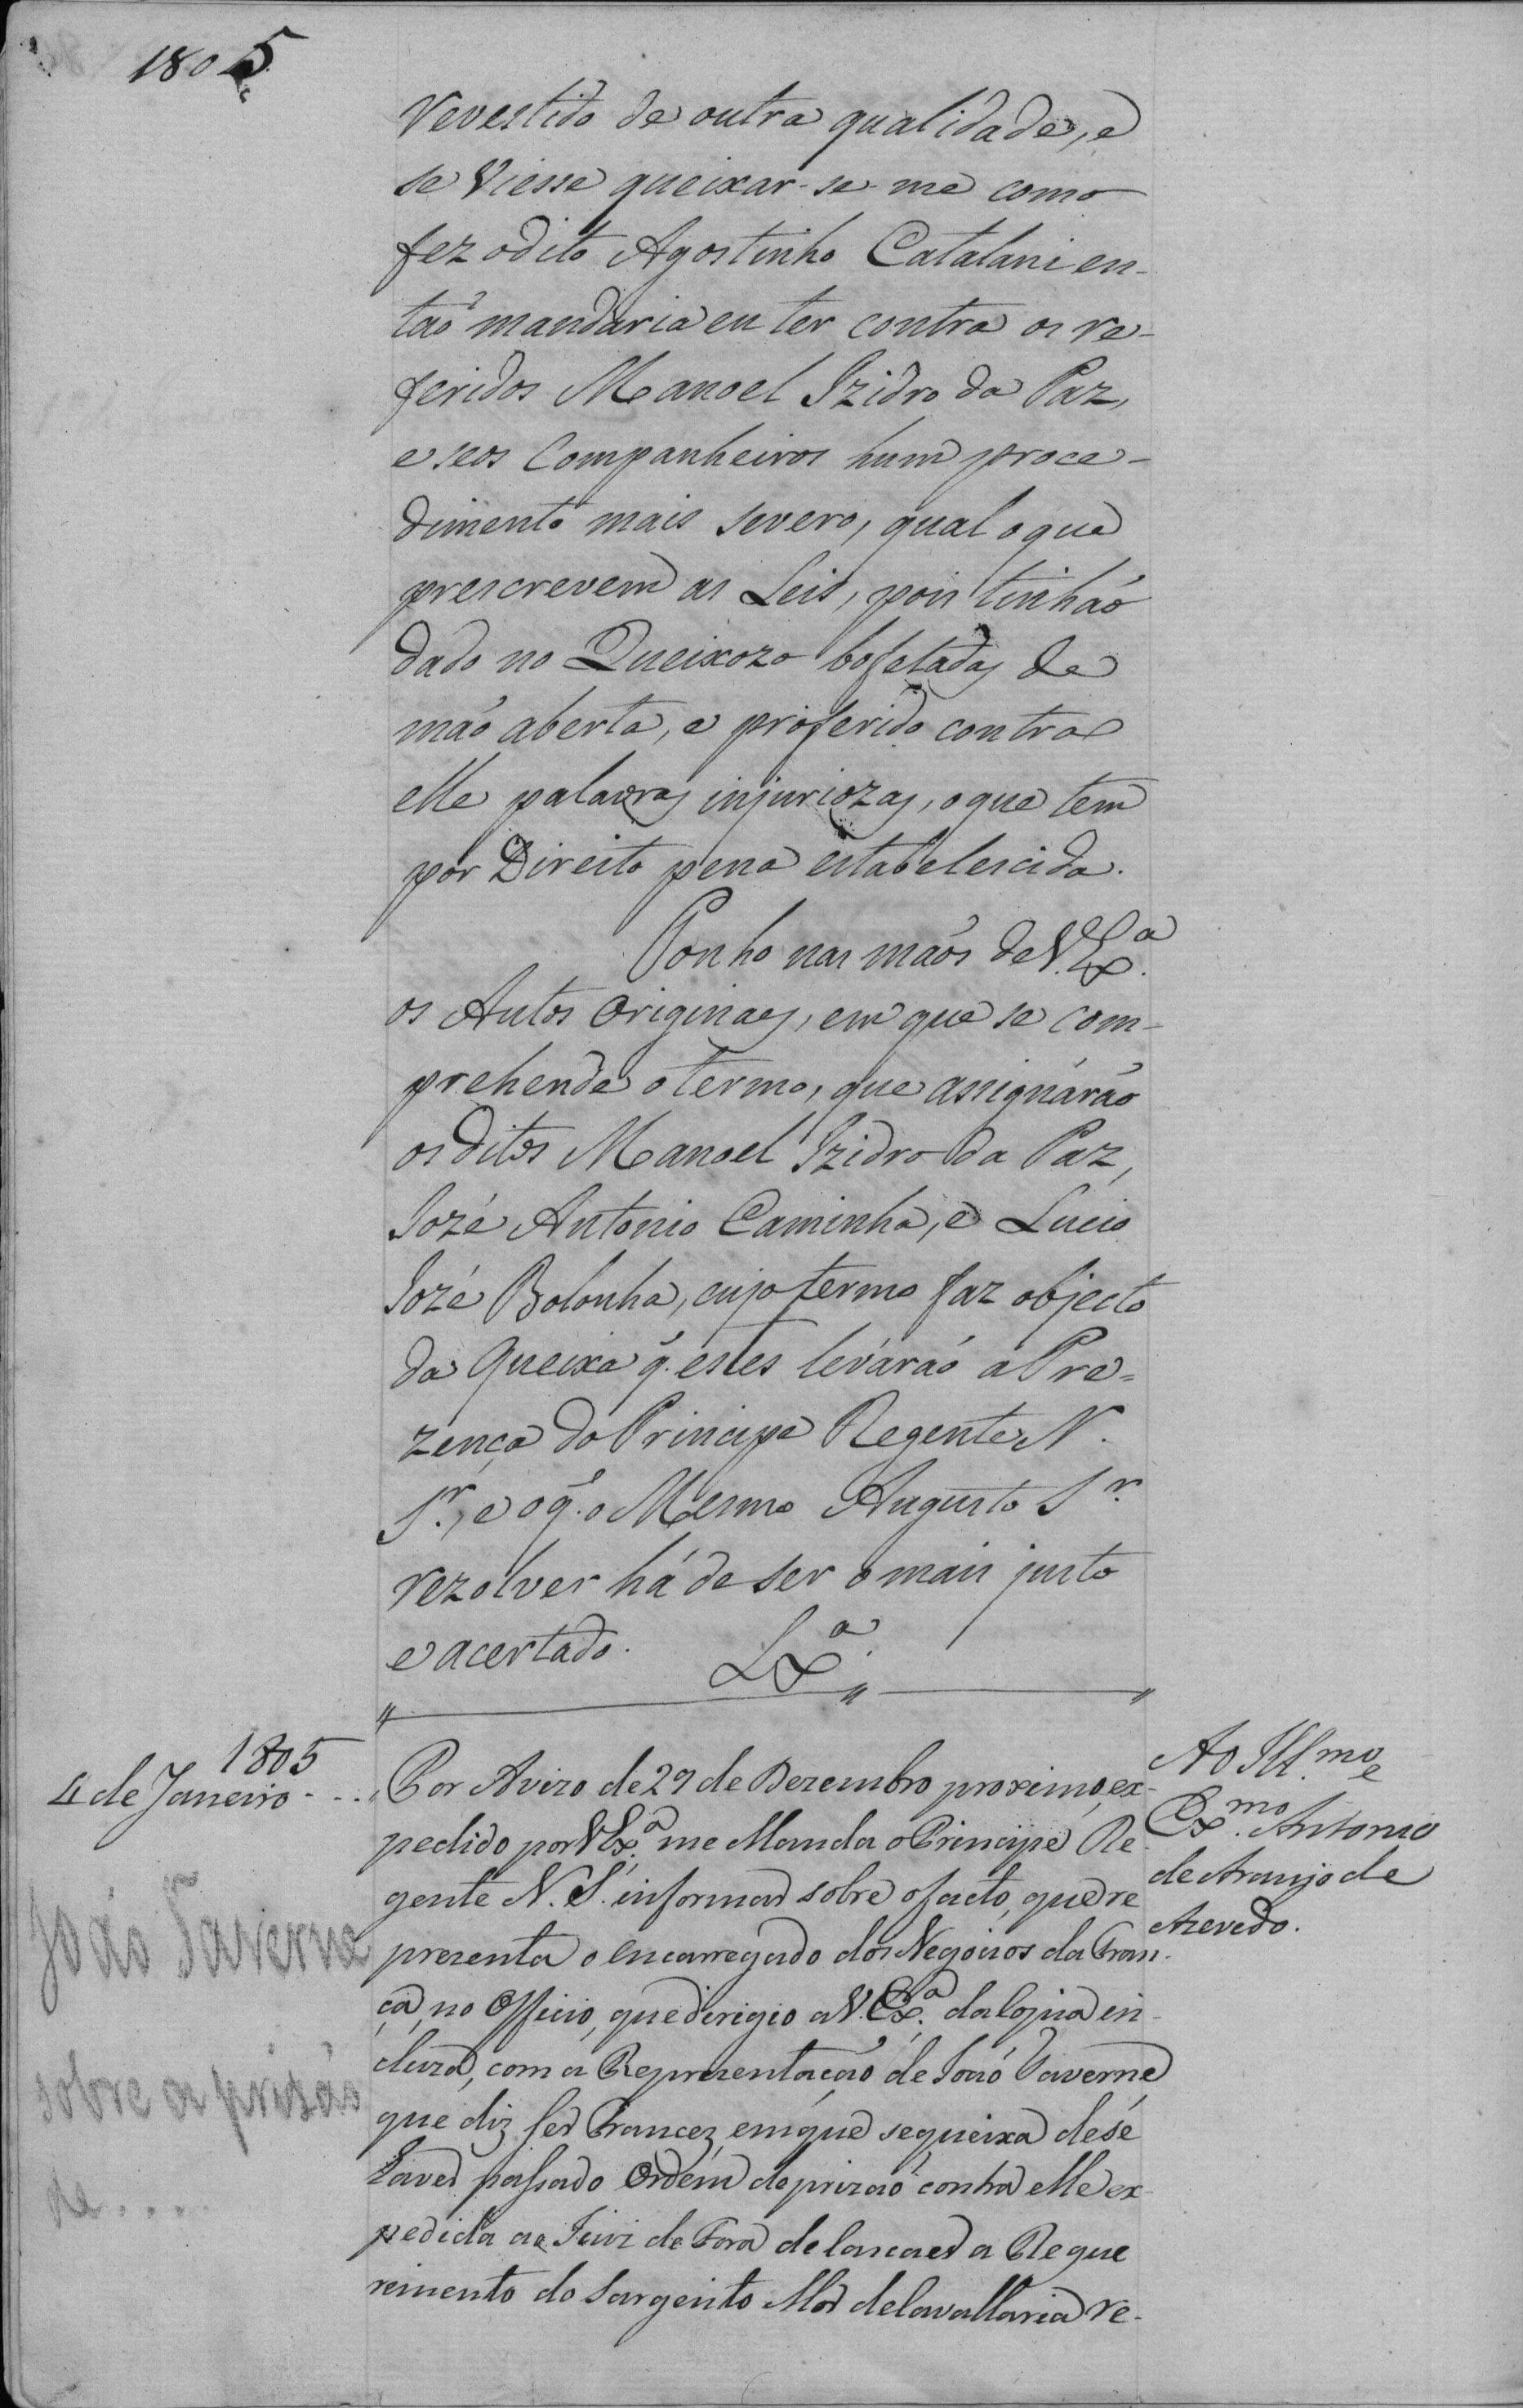 1805
revestido de outra qualidade, e
se viesse queixar-se-me como
fez o dito Agostinho Catalani en-
taõ mandaria eu ter contra os re-
feridos Manoel Izidro da Paz,
e seos Companheiros hum proce-
dimento mais severo, qual o que
prescrevem as Leis, pois tinhaõ
dado no Queixozo bofetadas de
maõ aberta, e proferido contra
elle palavras injuriozas, o que tem
por Direito pena estabelescida.
Ponho nas maõs de V. Ex.ª
os Autos Originaes, em que se com-
prehende o termo, que assignáraõ
os ditos Manoel Izidro da Paz,
Jozé Antonio Caminha, e Lucio
Jozé Bolonha, cujo termo faz objecto
da Queixa q̃. estes leváraõ a Pre=
zença do Principe Regente N.
S.r, e o q̃. o Mesmo Augusto S.r
rezolver há de ser o mais justo
e acertado. Lx.ª
1805
4 de Janeiro - - -
João Taverne
sobre a prizão
de....
Ao Ill.mo e
Ex.mo Antonio
de Araujo de
Azevedo.
Por Avizo de 29 de Dezembro proximo, ex-
pedido por V Ex.ª me Manda o Principe Re-
gente N. S. informar sobre o facto, que re
prezenta o encarregado dos Negocios da Fran-
ça, no Officio, que dirigio a V. Ex.ª da Copia in-
cluza, com a Reprezentaçaõ de Joaõ Taverne
que diz ser Francez, em que se queixa de sé
haver passado Ordem de prizaõ contra elle ex-
pedida ao Juiz de Fora de Cascaes a Reque
rimento do Sargento Mor de Cavallaria re-